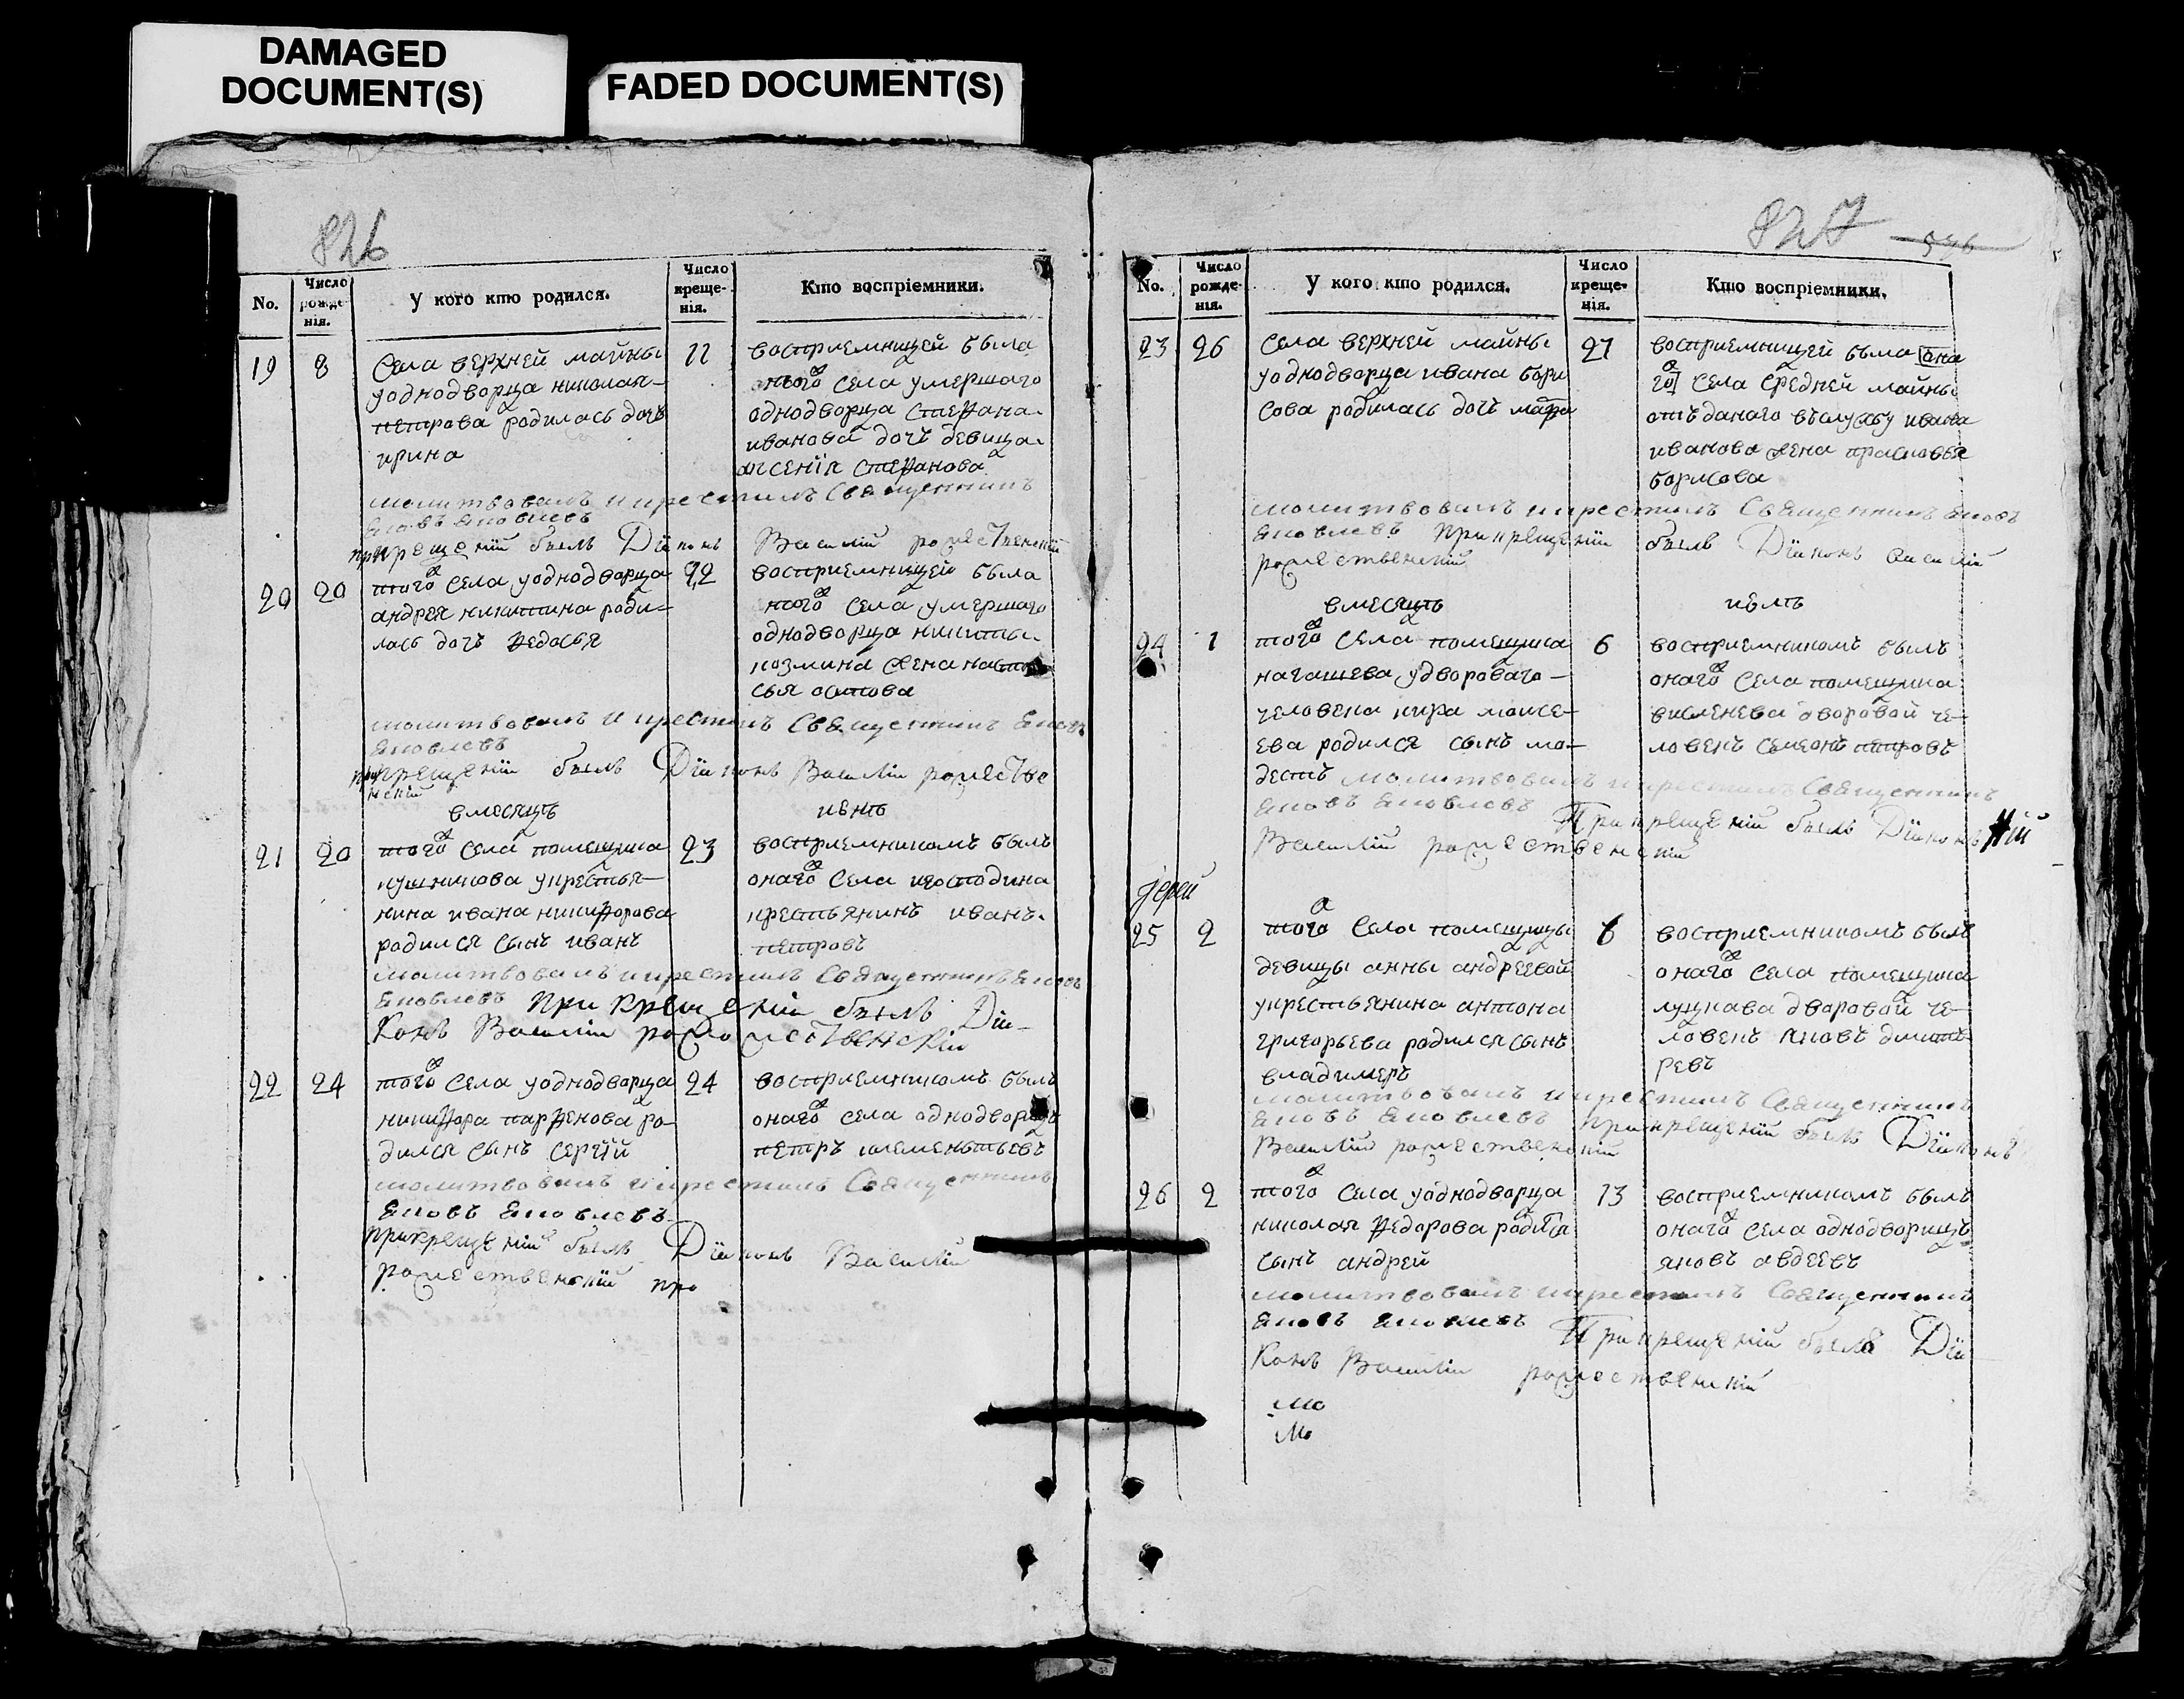 DAMAGED
DOCUMENT(S)
FADED DOCUMENT(S)
826
No.
Число рожденія.
У кого кто родился.
Число крещенія.
Кто воспріемники.
19 8
Села верхней майны
уоднодворца николая
петрова родилась дочь
ирина
11
восприемницей была
того села умершаго
однодворца степана
иванова дочь девица
аксенія степанова
молитвовалъ и крестилъ Священникъ
Яковъ Яковлевъ
при крещеніи былъ Діяконъ Василий
20 20
того села уоднодворца
андрея никитина роди-
лась дочь федосья
22
восприемницей была
того села умершаго
однодворца никиты
козмина жена
молитвовалъ и крестилъ Священникъ Яковъ
Яковлевъ
при крещеніи былъ Діяконъ Василіи
вмесяцъ
21 20
того села помещика
кушникова укрестья-
нина ивана никифорова
родился сынъ иванъ
23
восприемникомъ былъ
онаго села
крестьянинъ иванъ
петровъ
молитвовалъ и крестилъ Священникъ Яковъ
Яковлевъ При крещеніи былъ Дія-
конъ Василіи
22 24
того села уоднодворца
никифора парфенова ро-
дился сынъ сергій
24
восприемникомъ былъ
онаго села однодворецъ
петръ
молитвовалъ и крестилъ Священникъ
Яковъ Яковлевъ
при крещеніи былъ Діяконъ Василій
827
No.
Число рожденія.
У кого кто родился.
Число крещенія.
Кто воспріемники.
23 26
Села верхней майны
уоднодворца ивана бори
сова родилась дочь
27
восприемницей была она
го села средней майны
отъ данаго вслужбу ивана
иванова жена прасковья
борисова
молитвовалъ и крестилъ Священникъ Яковъ
Яковлевъ при крещеніи былъ Діяконъ Василій
вмесяцъ
24 1
того села помещика
нагашева удвороваго
человека кира моисе-
ева родился сынъ мо-
дестъ
6
восприемникомъ былъ
онаго села помещика
дворовой че-
ловекъ семенъ петровъ
молитвовалъ и крестилъ Священникъ
Яковъ Яковлевъ При крещеніи былъ Діяконъ
Василій
Іерей
25 2
того села помещицы
девицы анны андреевой
укрестьянина антона
григорьева родился сынъ
владимеръ
6
восприемникомъ былъ
онаго села помещика
дваровой че-
ловекъ яковъ
молитвовалъ и крестилъ Священникъ
Яковъ Яковлевъ при крещеніи былъ Діяконъ
Василій
26 2
того села уоднодворца
николая федорова
сынъ андрей
13
восприемникомъ былъ
онаго села однодворецъ
яковъ авдеевъ
молитвовалъ и крестилъ Священникъ
Яковъ Яковлевъ При крещеніи былъ Дія
конъ Василіи
мо
мо